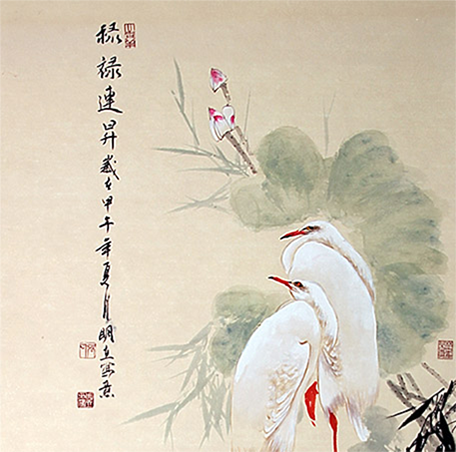 禄禄連昇歲在甲午年夏月明立寫意